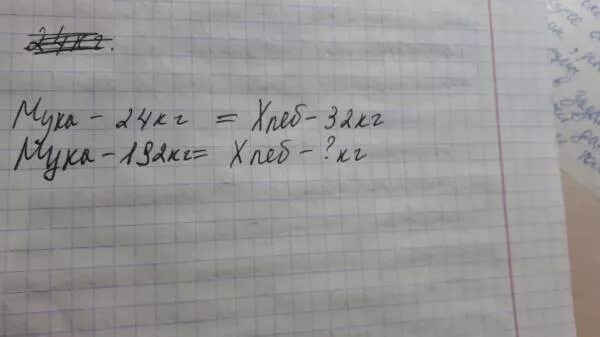 24кг.
Мука - 24кг = Хлеб - 32кг
Мука - 192кг = Хлеб - ? кг